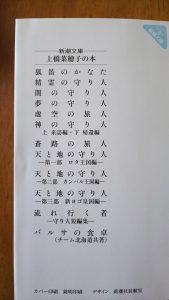 新潮文庫
上橋菜穂子の本
狐笛のかなた
精霊の守り人
闇の守り人
夢の守り人
虚空の旅人
神の守り人
上 来訪編・下 帰還編
蒼路の旅人
天と地の守り人
―第一部 ロタ王国編―
天と地の守り人
―第二部 カンバル王国編―
天と地の守り人
―第三部 新ヨゴ皇国編―
流れ行く者
―守り人短編集―
バルサの食卓
(チーム北海道共著)
カバー印刷 錦明印刷 デザイン 新潮社装幀室